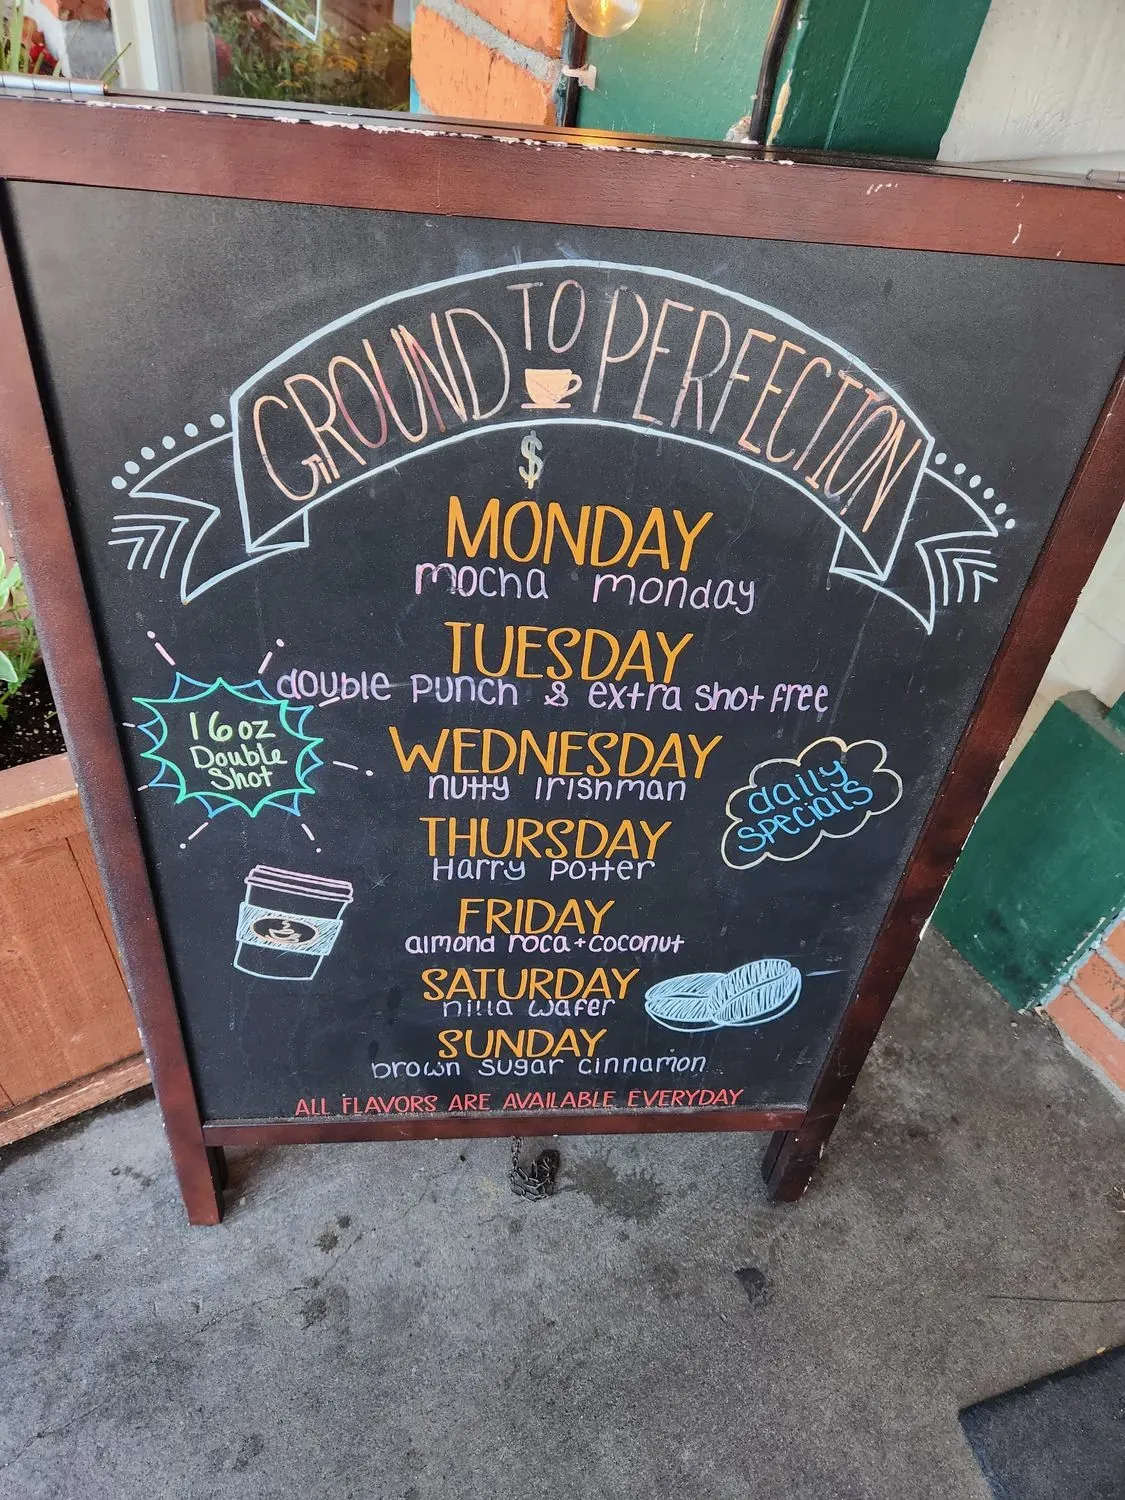 GROUND TO PERFECTION
$
MONDAY
mocha monday
TUESDAY
double punch & extra shot free
16oz
Double
Shot
WEDNESDAY
nutty irishman
daily
specials
THURSDAY
Harry Potter
FRIDAY
almond roca + coconut
SATURDAY
nilla wafer
SUNDAY
brown sugar cinnamon
ALL FLAVORS ARE AVAILABLE EVERYDAY